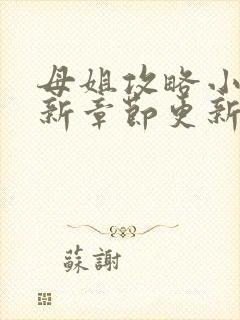 母姐攻略小
新章節更新
蘇謝